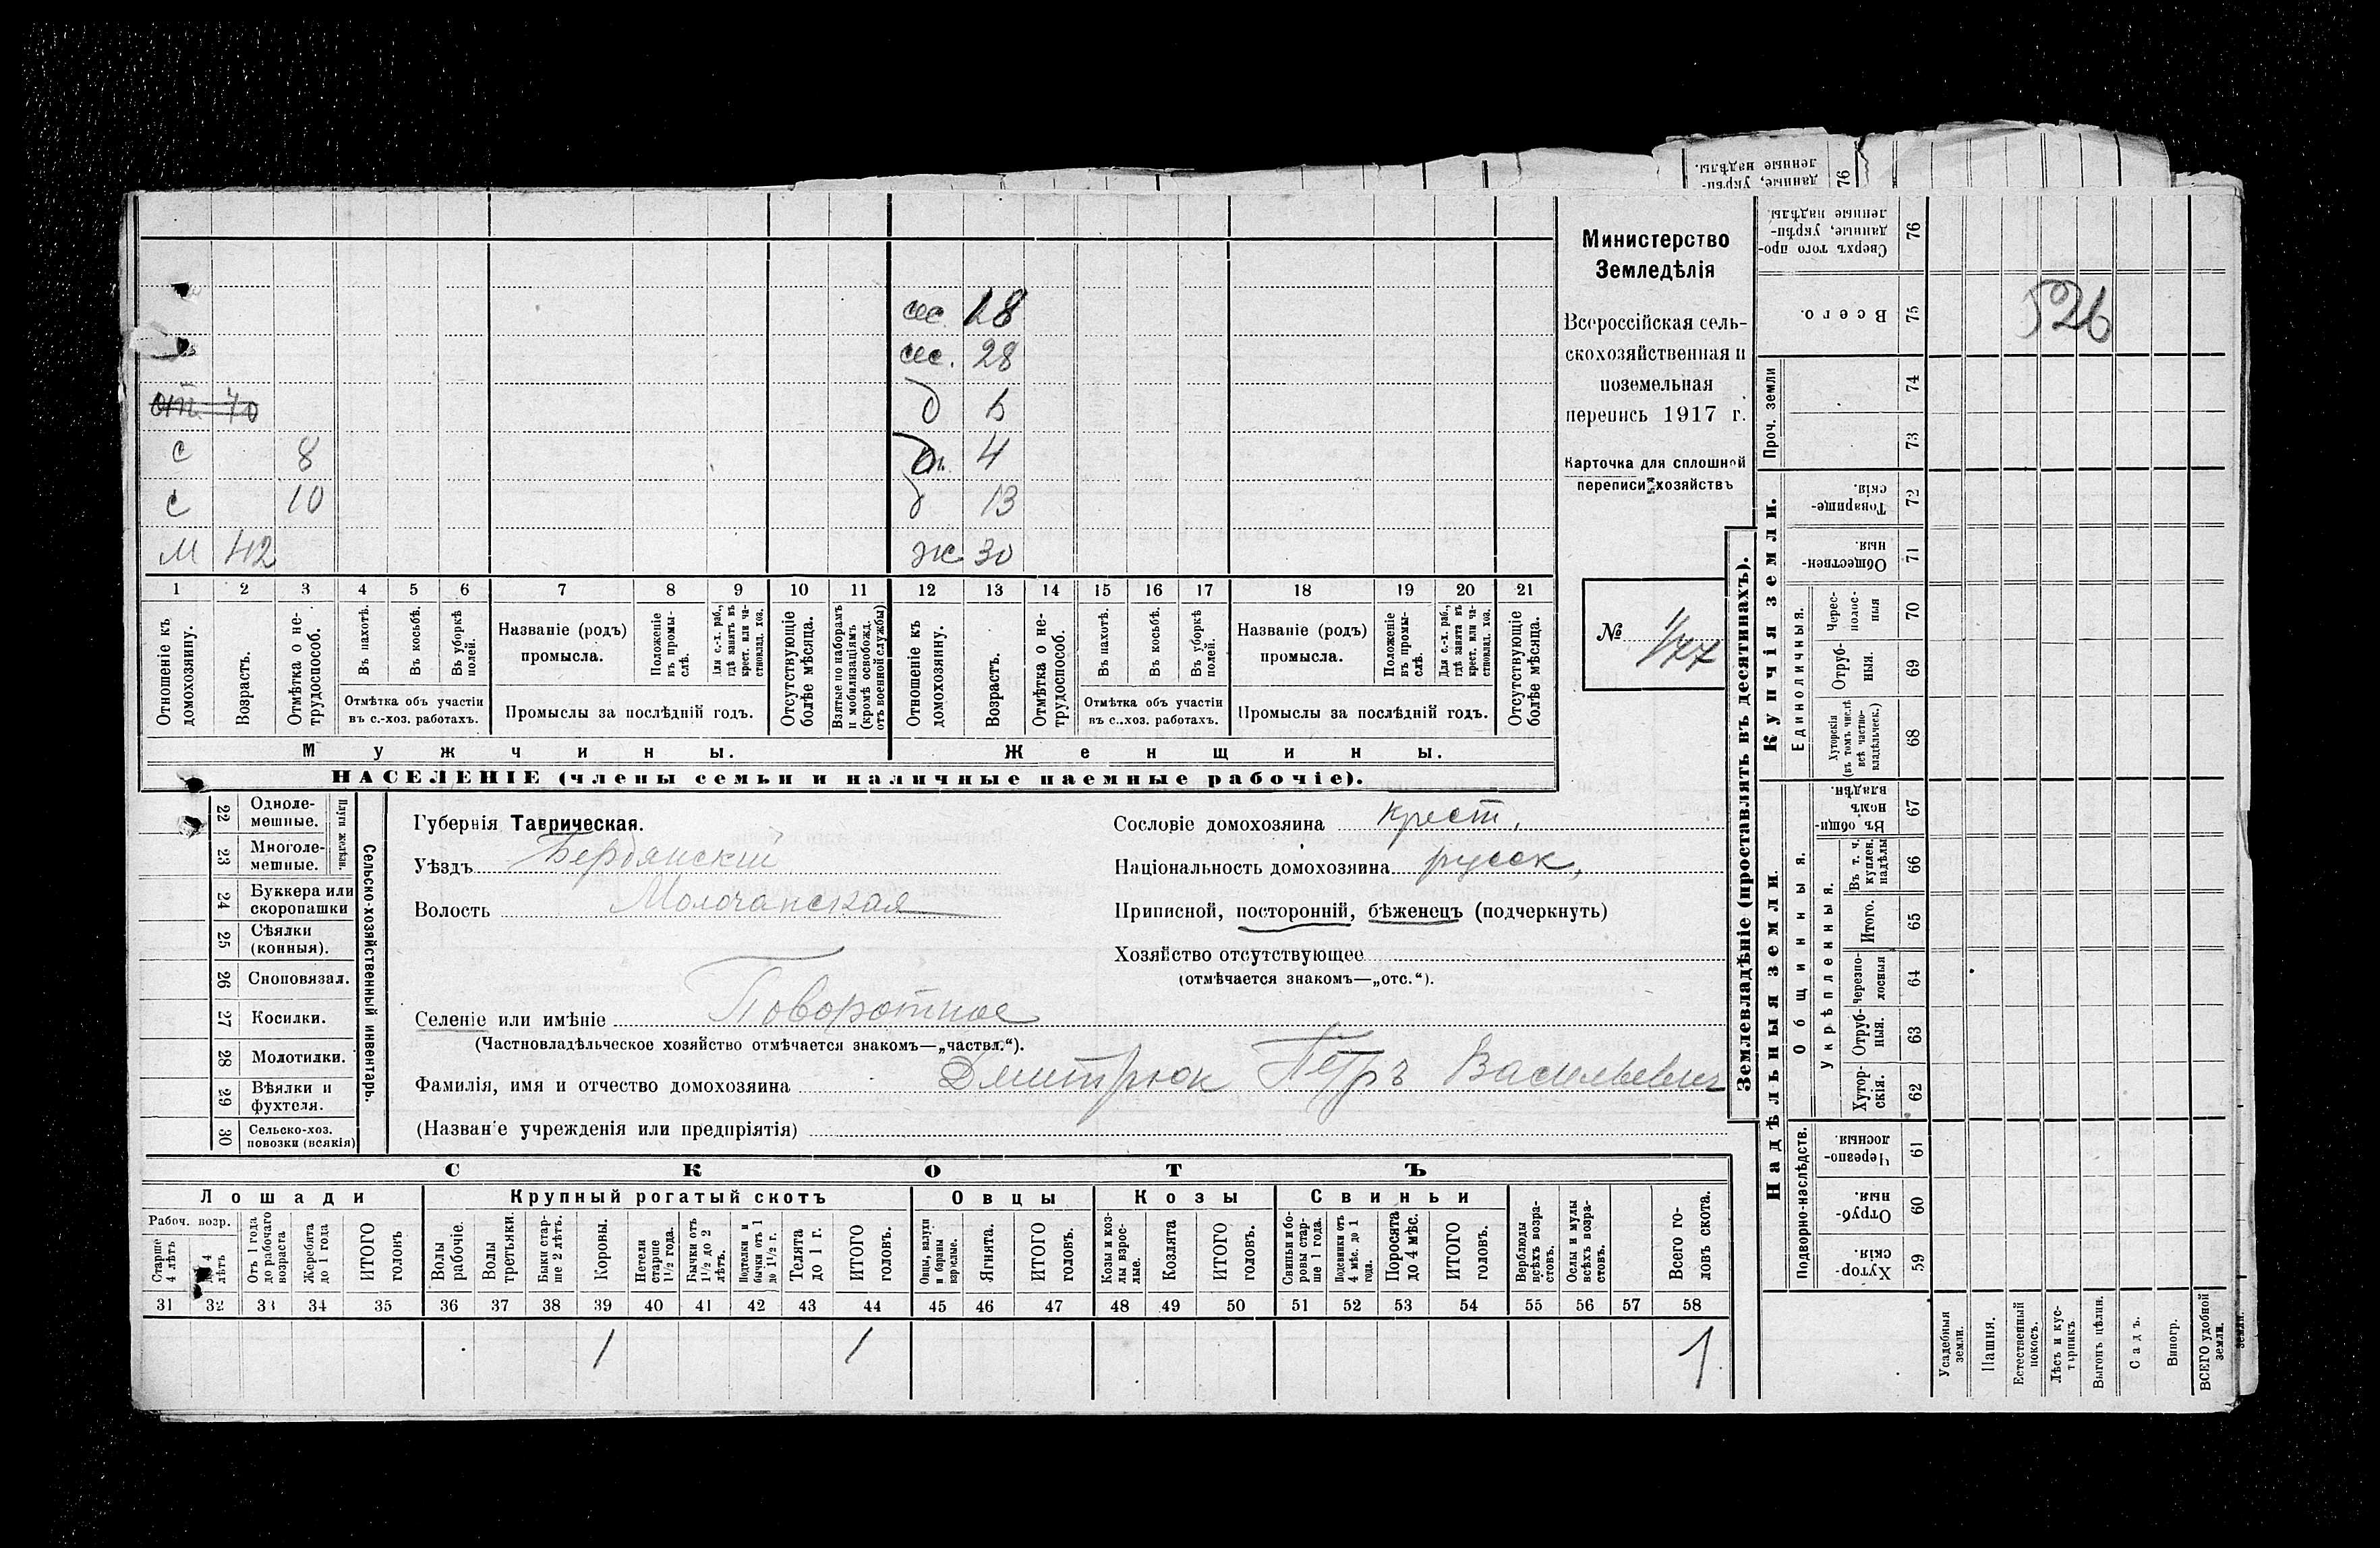 данные, укрѣп-
ленные надѣлы.
76
526
сес 18
сес. 28
от. 40 д
с 8 4
с 10 д 13
м 42 ж 30
1 2 3 4 5 6 7 8 9 10 11 12 13 14 15 16 17 18 19 20 21
Отношеніе къ домохозяину.
Возрастъ.
Отмѣтка о не-трудоспособ.
Въ пахотѣ.
Въ косьбѣ.
Въ уборкѣ полей.
Отмѣтка объ участіи
въ с.-хоз. работахъ.
Названіе (родъ)
промысла.
Положеніе въ промы-слѣ.
Для с.-х. раб., гдѣ занятъ въ крест. или ча-ствовлад. хоз.
Промыслы за послѣдній годъ.
Отсутствующіе болѣе мѣсяца.
Взятые по наборамъ и мобилизаціямъ (кромѣ освобожд. отъ военной службы)
Отношеніе къ домохозяину.
Возрастъ.
Отмѣтка о не-трудоспособ.
Въ пахотѣ.
Въ косьбѣ.
Въ уборкѣ полей.
Отмѣтка объ участіи
въ с.-хоз. работахъ.
Названіе (родъ)
промысла.
Положеніе въ промы-слѣ.
Для с.-х. раб., гдѣ занята въ крест. или ча-ствовлад. хоз.
Промыслы за послѣдній годъ.
Отсутствующіе болѣе мѣсяца.
Мужчины. Женщины.
НАСЕЛЕНІЕ (члены семьи и наличные наемные рабочіе).
Министерство
Земледѣлія
Всероссійская сель-
скохозяйственная и
поземельная
перепись 1917 г.
Карточка для сплошной
переписи хозяйствъ
№ 177
22 Одноле-мешные.
23 Многоле-мешные.
Плуги желѣзн.
24 Буккера или скоропашки
25 Сѣялки (конныя).
26 Сноповязал.
27 Косилки.
28 Молотилки.
29 Вѣялки и фухтеля.
30 Сельско-хоз. повозки (всякія)
Сельско-хозяйственный инвентарь.
Губернія Таврическая.
Уѣздъ Бердянский
Волость Молочанская
Сословіе домохозяина крест.
Національность домохозяина русск,
Приписной, посторонній, бѣженецъ (подчеркнуть)
Хозяйство отсутствующее
(отмѣчается знакомъ—„отс.“).
Селеніе или имѣніе Поворотное
(Частновладѣльческое хозяйство отмѣчается знакомъ—„частвл.“).
Фамилія, имя и отчество домохозяина Дмитрюк Петръ Васильевич
(Названіе учрежденія или предпріятія)
СКОТЪ
Лошади Крупный рогатый скотъ Овцы Козы Свиньи
Рабоч. возр.
Старше 4 лѣтъ
До 4 лѣтъ
Отъ 1 года до рабочаго возраста
Жеребята до 1 года
ИТОГО головъ
Волы рабочіе.
Волы третьяки.
Быки стар-ше 2 лѣтъ.
Коровы.
Нетели старше 1½ года.
Бычки отъ 1½ до 2 лѣтъ.
Подтелки и бычки отъ 1 до 1½ г.
Телята до 1 г.
ИТОГО головъ.
Овцы, валухи и бараны взрослые.
Ягнята.
ИТОГО головъ.
Козы и коз-лы взрос-лые.
Козлята
ИТОГО головъ.
Свиньи и бо-ровы стар-ше 1 года.
Подсвинки отъ 4 мѣс. до 1 года.
Поросята до 4 мѣс.
ИТОГО головъ.
Верблюды всѣхъ возра-стовъ.
Ослы и мулы всѣхъ возра-стовъ.
Всего го-ловъ скота.
31 32 33 34 35 36 37 38 39 40 41 42 43 44 45 46 47 48 49 50 51 52 53 54 55 56 57 58
1 1 1
Землевладѣніе (проставлять въ десятинахъ).
Сверхъ того про-данные, укрѣп-ленные надѣлы. 76
Всего. 75
Проч. земли 74 73
Купчія земли.
Товарище-скія. 72
Обществен-ныя. 71
Единоличныя.
Черес-полос-ныя 70
Отруб-ныя. 69
Хуторскія (въ томъ числѣ всѣ частно-владѣльческ.) 68
Надѣльныя земли.
Общинныя.
Въ общи-номъ владѣн. 67
Укрѣпленныя.
Въ т. ч. куплен. надѣлы 66
Итого. 65
Черезпо-лосныя 64
Отруб-ныя. 63
Хутор-скія. 62
Подворно-наслѣдств.
Черезпо-лосныя. 61
Отруб-ныя. 60
Хутор-скія. 59
Усадебныя земли.
Пашня.
Естественный покосъ.
Лѣсъ и кус-тарникъ
Выгонъ цѣлин.
Садъ.
Виногр.
ВСЕГО удобной земли.
земли.